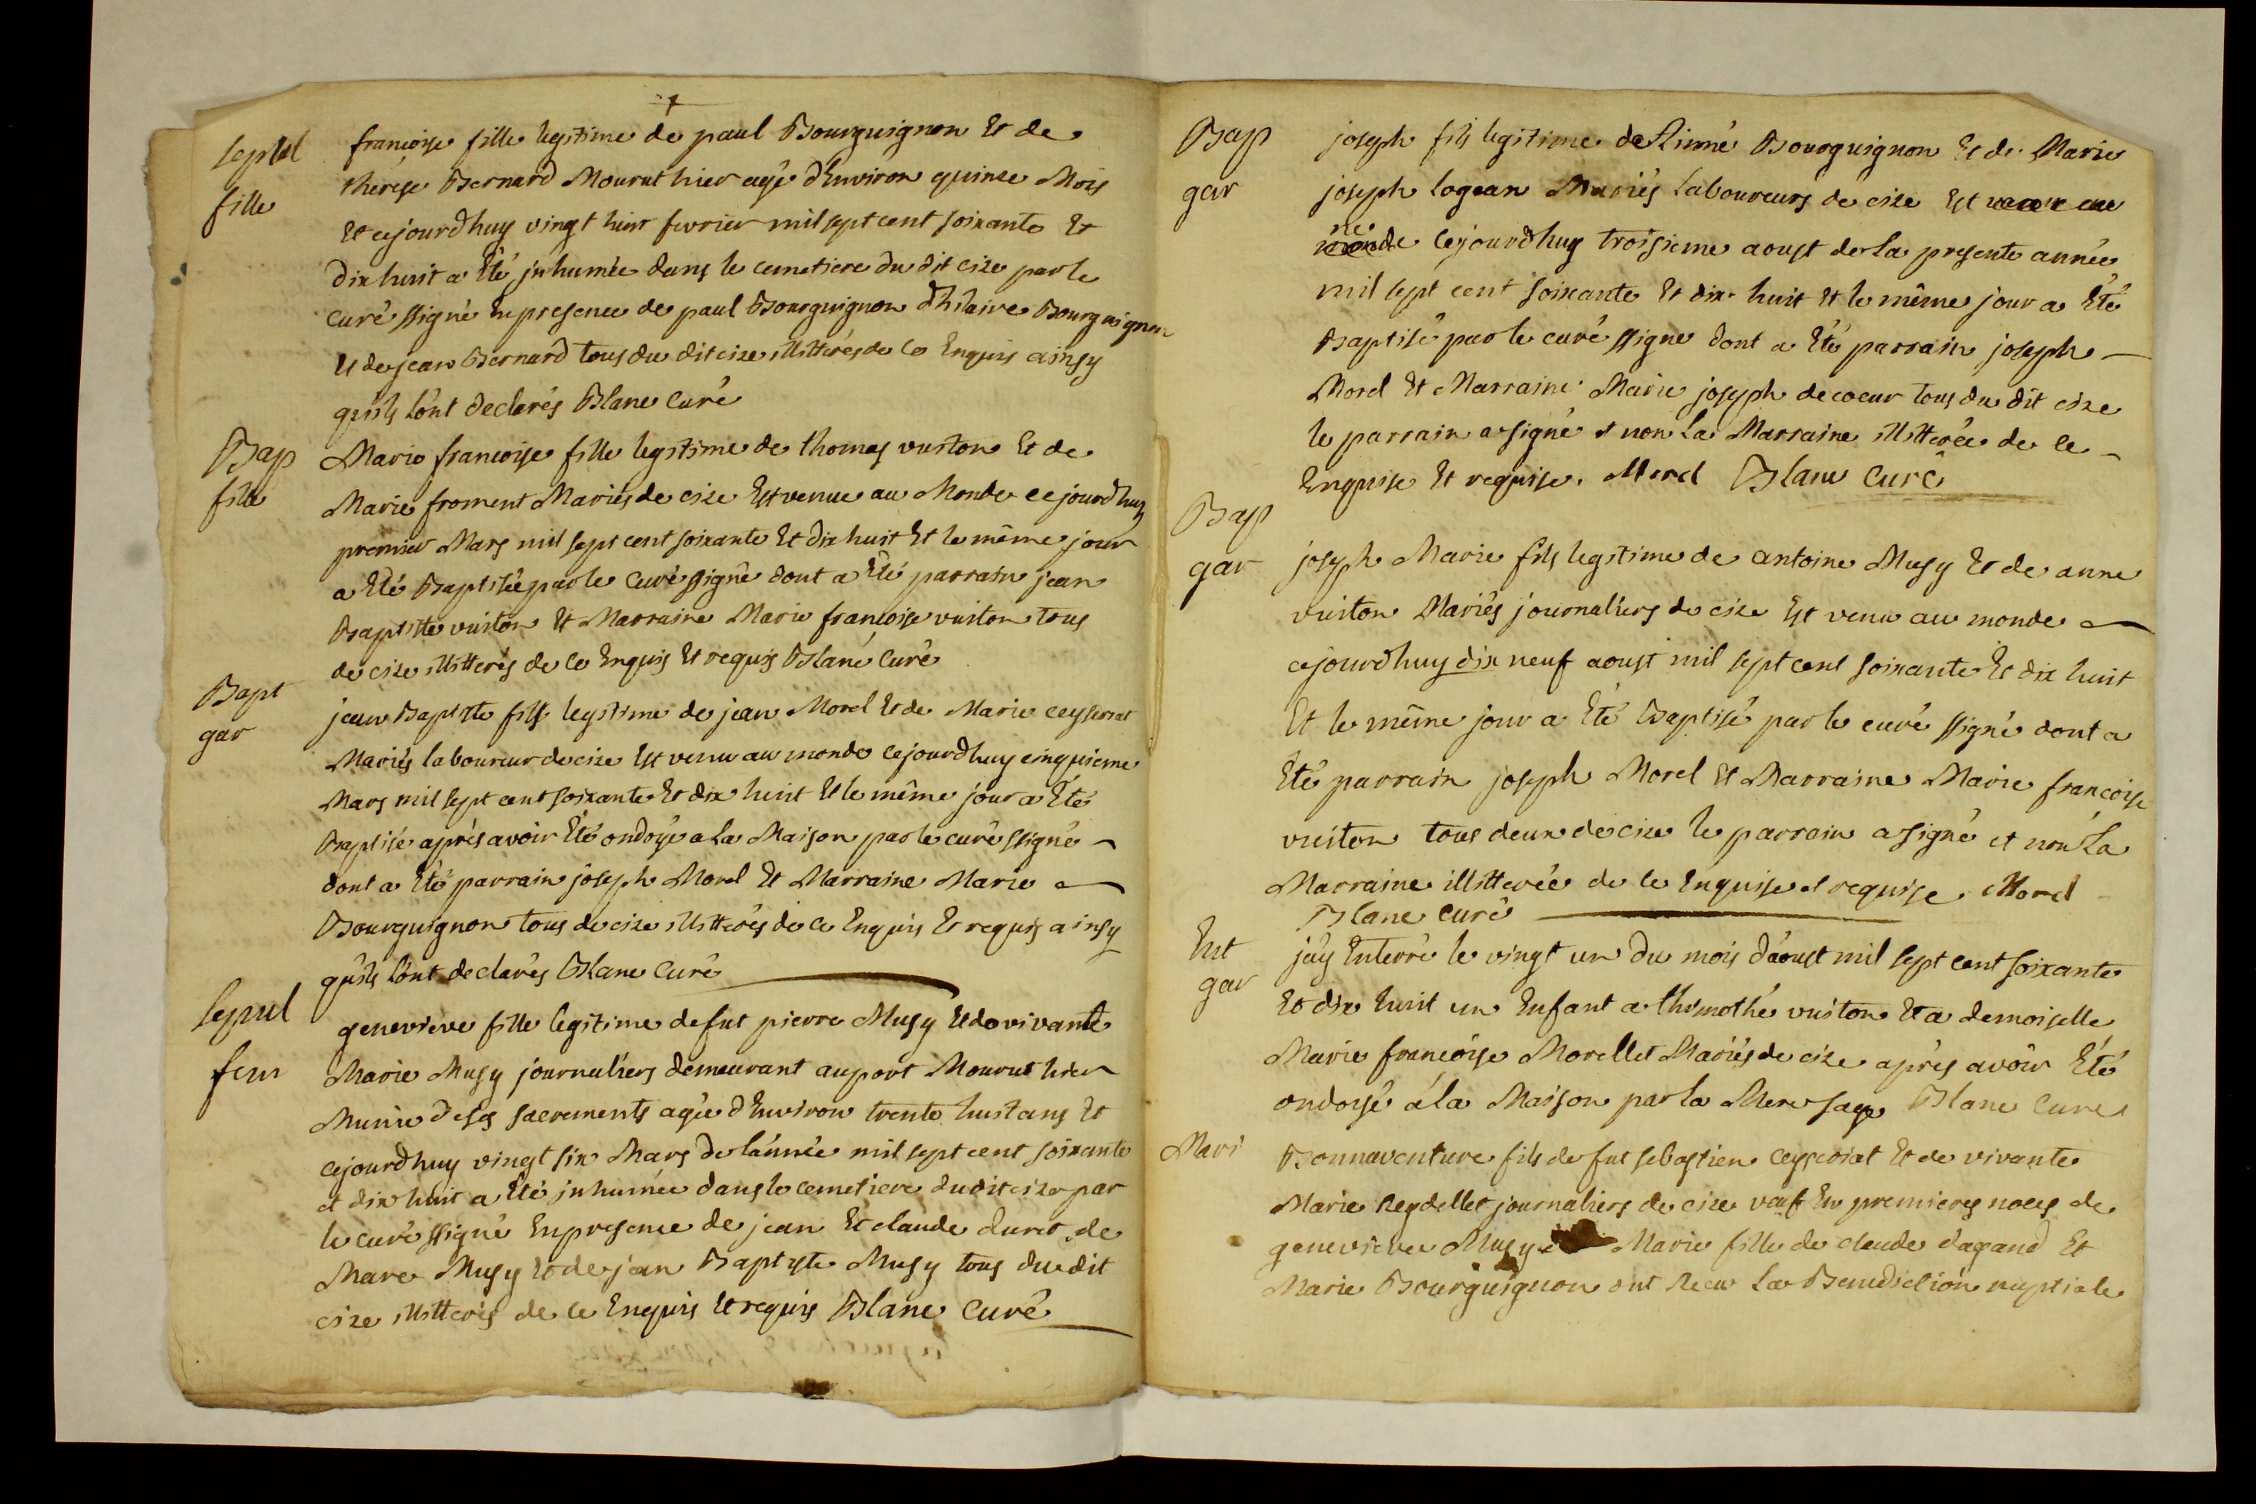 Sepul
fille
françoise fille legitime de paul Bourguignon Et de
therése Bernard Mourut hier agé d'Environ quinze Mois
Et cejourdhuy vingt huit fevrier mil sept cent soixante Et
dix huit a Eté inhumée dans le cemetiere du dit cize par le
curé ssigné En presence de paul Bourguignon d'hilaire Bourguignon
Et de jean Bernard tous du dit cize illitterés de ce Enquis ainsy
qu'ils l'ont declarés Blanc Curé
Bap
fille
Marie françoise fille legitime de thomas vuiton Et de
Marie froment Mariés de cize Est venue au Monde cejourdhuy
premier Mars mil sept cent soixante Et dix huit Et le même jour
a Eté Baptisée par le Curé ssigné dont a Eté parrain jean
Baptiste vuiton Et Marraine Marie françoise vuiton tous
de cize illitterés de ce Enquis Et requis Blanc Curé
Bapt
gar
jean Baptiste fils legitime de jean Morel Et de Marie ceyserat
Mariés laboureur de cize Est venu au monde cejourdhuy cinquieme
Mars mil sept cent soixante Et dix huit Et le même jour a Eté
Baptisé aprés avoir Eté ondoyé a la Maison par le curé ssigné
dont a Eté parrain joseph Morel Et Marraine Marie
Bourguignon tous de cize illitterés de ce Enquis Et requis ainsy
qu'ils l'ont declarés Blanc Curé
Sepul
fem
genevieve fille legitime de fut pierre Musy Et de vivante
Marie Musy journaliers demeurant au port Mourut hier
Munie de ses sacrements agée d'Environ trente huit ans Et
cejourdhuy vingt six Mars de l'année mil sept cent soixante
et dix huit a Eté inhumée dans le cemetiere du dit cize par
le curé ssigné En presence de jean Et claude duret de
Marc Musy Et de jean Baptiste Musy tous du dit
cize illitterés de ce Enquis Et requis Blanc Curé
Bap
gar
joseph fils legitime de Bourguignon Et de Marie
joseph logean Mariés Laboureurs de cize Est
né
cejourdhuy troisieme aoust de la presente année
mil sept cent soixante Et dix huit Et le même jour a Eté
Baptisé par le curé ssigné dont a Eté parrain joseph
Morel Et Marraine Marie joseph decoeur tous du dit cize
le parrain a signé et non la Marraine illitterée de ce
Enquise Et requise. Morel Blanc Curé
Bap
gar
joseph Marie fils legitime de antoine Musy Et de anne
vuiton Mariés journaliers de cize Est venu au monde
cejourdhuy dix neuf aoust mil sept cent soixante Et dix huit
Et le même jour a Eté Baptisé par le curé ssigné dont a
Eté parrain joseph Morel Et Marraine Marie françoise
vuiton tous deux de cize le parrain a signé et non la
Marraine illitterée de ce Enquise et requise. Morel
Blanc curé
Ent
gar
j'ay Enterré le vingt un du mois d'aoust mil sept cent soixante
Et dix huit un Enfant a thimothé vuiton Et a demoiselle
Marie françoise Morellet Mariés de cize aprés avoir Eté
ondoyé a la Maison par la Mere sage Blanc Curé
Mari
Bonnaventure fils de fut sebastien ceyseriat Et de vivante
Marie Reydellet journaliers de cize veuf En premieres noces de
genevieve Musy Marie fille de claude dagand Et
Marie Bourguignon ont Recu la Benediction nuptiale